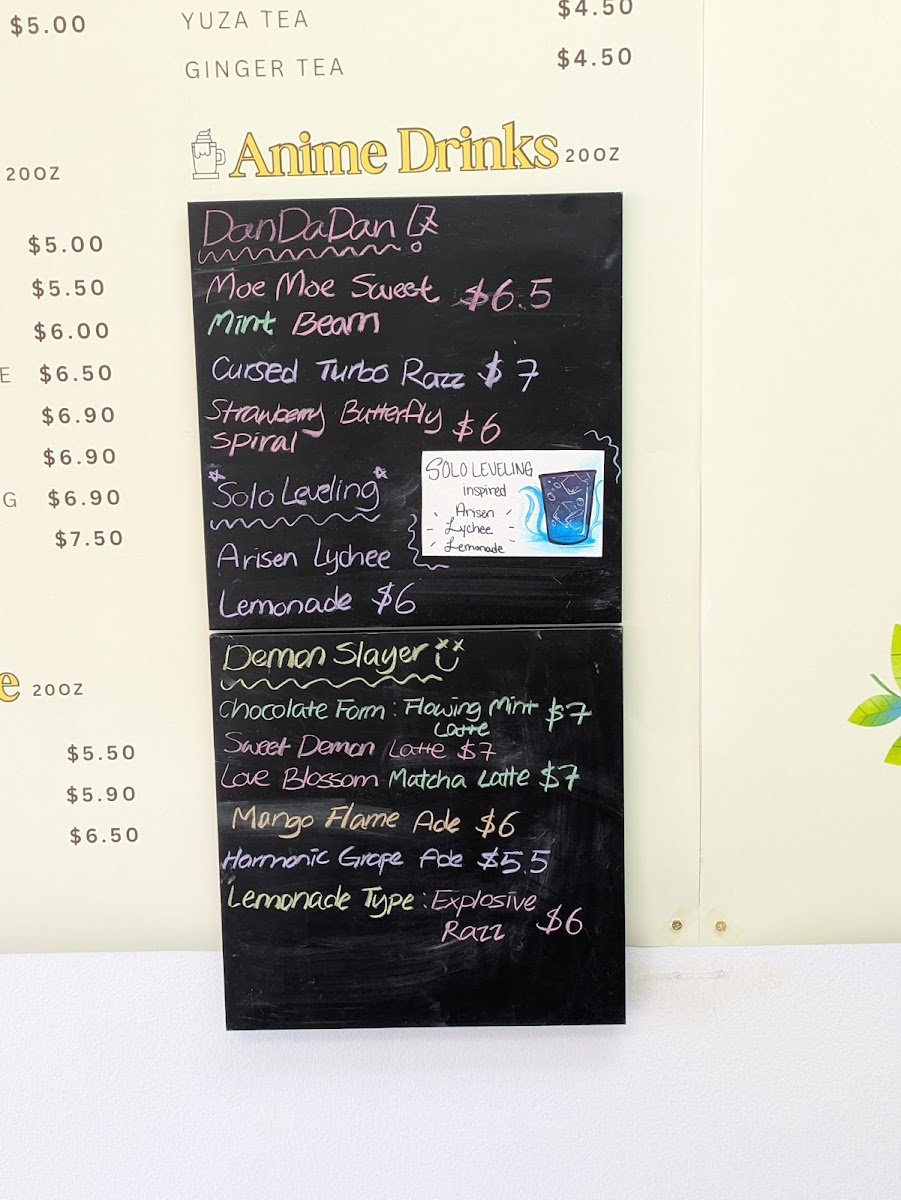 $5.00
20OZ
$5.00
$5.50
$6.00
E $6.50
$6.90
$6.90
G $6.90
$7.50
e 20OZ
$5.50
$5.90
$6.50
YUZA TEA $4.50
GINGER TEA $4.50
Anime Drinks 20OZ
DanDaDan
Moe Moe Sweet $6.5
Mint Beam
Cursed Turbo Razz $7
Strawberry Butterfly $6
Spiral
Solo Leveling
Arisen Lychee
Lemonade $6
SOLO LEVELING
inspired
Arisen
Lychee
Lemonade
Demon Slayer
Chocolate Form: Flowing Mint $7
Latte
Sweet Demon Latte $7
Love Blossom Matcha Latte $7
Mango Flame Ade $6
Harmonic Grape Ade $5.5
Lemonade Type: Explosive $6
Razz